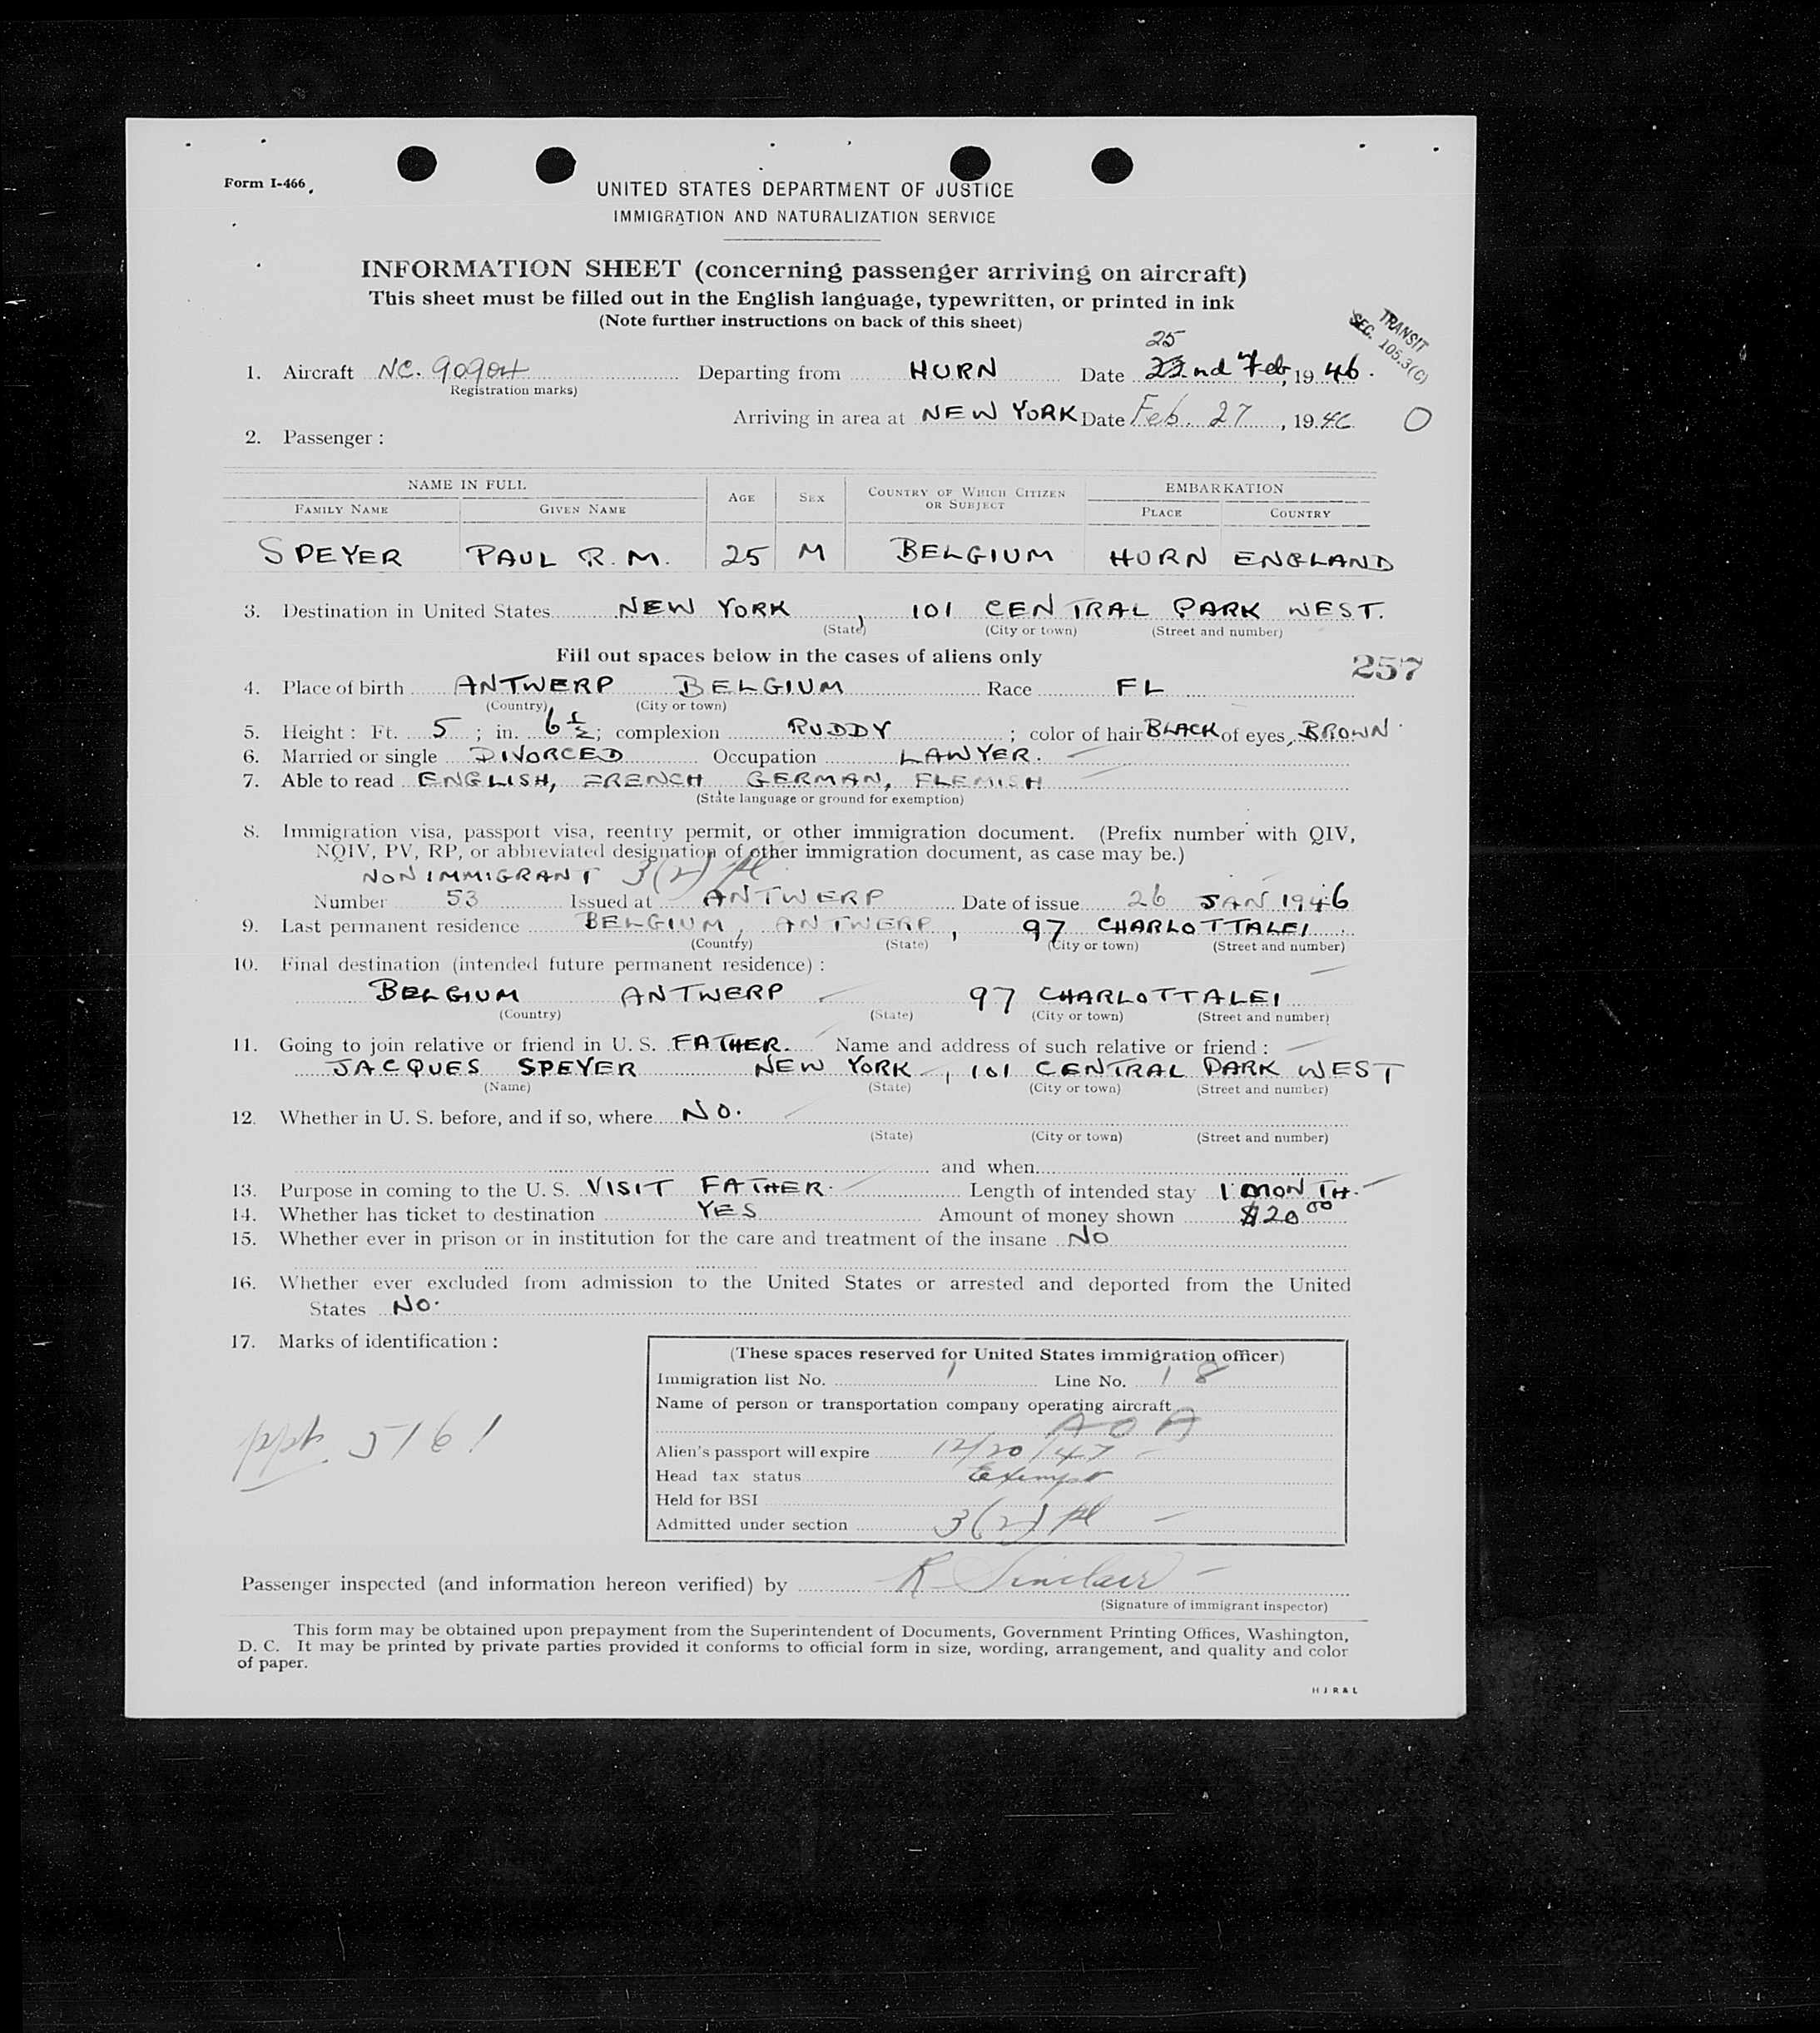 Form I-466
UNITED STATES DEPARTMENT OF JUSTICE
IMMIGRATION AND NATURALIZATION SERVICE
INFORMATION SHEET (concerning passenger arriving on aircraft)
This sheet must be filled out in the English language, typewritten, or printed in ink
(Note further instructions on back of this sheet)
TRANSIT
SEC. 105.3(C)
25
1. Aircraft NC. 90904 Departing from HURN Date 22nd Feb, 1946.
(Registration marks)
Arriving in area at NEW YORK Date Feb. 27, 1946 O
2. Passenger:
NAME IN FULL AGE SEX COUNTRY OF WHICH CITIZEN OR SUBJECT EMBARKATION
FAMILY NAME GIVEN NAME PLACE COUNTRY
SPEYER PAUL R. M. 25 M BELGIUM HURN ENGLAND
3. Destination in United States NEW YORK, 101 CENTRAL PARK WEST.
(State) (City or town) (Street and number)
Fill out spaces below in the cases of aliens only
257
4. Place of birth ANTWERP BELGIUM Race FL
(Country) (City or town)
5. Height: Ft. 5; in. 6½; complexion RUDDY; color of hair BLACK of eyes, BROWN
6. Married or single DIVORCED Occupation LAWYER.
7. Able to read ENGLISH, FRENCH, GERMAN, FLEMISH
(State language or ground for exemption)
8. Immigration visa, passport visa, reentry permit, or other immigration document. (Prefix number with QIV,
NQIV, PV, RP, or abbreviated designation of other immigration document, as case may be.)
NONIMMIGRANT 3(2) pl
Number 53 Issued at ANTWERP Date of issue 26 JAN 1946
9. Last permanent residence BELGIUM, ANTWERP, 97 CHARLOTTALEI
(Country) (State) (City or town) (Street and number)
10. Final destination (intended future permanent residence):
BELGIUM ANTWERP 97 CHARLOTTALEI
(Country) (State) (City or town) (Street and number)
11. Going to join relative or friend in U. S. FATHER. Name and address of such relative or friend:
JACQUES SPEYER NEW YORK, 101 CENTRAL PARK WEST
(Name) (State) (City or town) (Street and number)
12. Whether in U. S. before, and if so, where NO.
(State) (City or town) (Street and number)
and when
13. Purpose in coming to the U. S. VISIT FATHER. Length of intended stay 1 MONTH.
14. Whether has ticket to destination YES Amount of money shown $20 00
15. Whether ever in prison or in institution for the care and treatment of the insane NO
16. Whether ever excluded from admission to the United States or arrested and deported from the United
States NO.
17. Marks of identification:
ppt 5161
(These spaces reserved for United States immigration officer)
Immigration list No. 1 Line No. 18
Name of person or transportation company operating aircraft
AOA
Alien's passport will expire 12/20/47
Head tax status Exempt
Held for BSI
Admitted under section 3(2) pl
Passenger inspected (and information hereon verified) by R Sinclair
(Signature of immigrant inspector)
This form may be obtained upon prepayment from the Superintendent of Documents, Government Printing Offices, Washington,
D. C. It may be printed by private parties provided it conforms to official form in size, wording, arrangement, and quality and color
of paper.
H J R & L